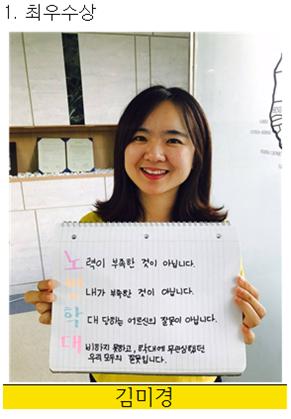 1. 최우수상
노력이 부족한 것이 아닙니다.
인 내가 부족한 것이 아닙니다.
학대 당하는 어르신의 잘못이 아닙니다.
대비하지 못하고, 학대에 무관심했던
우리 모두의 잘못입니다.
김미경